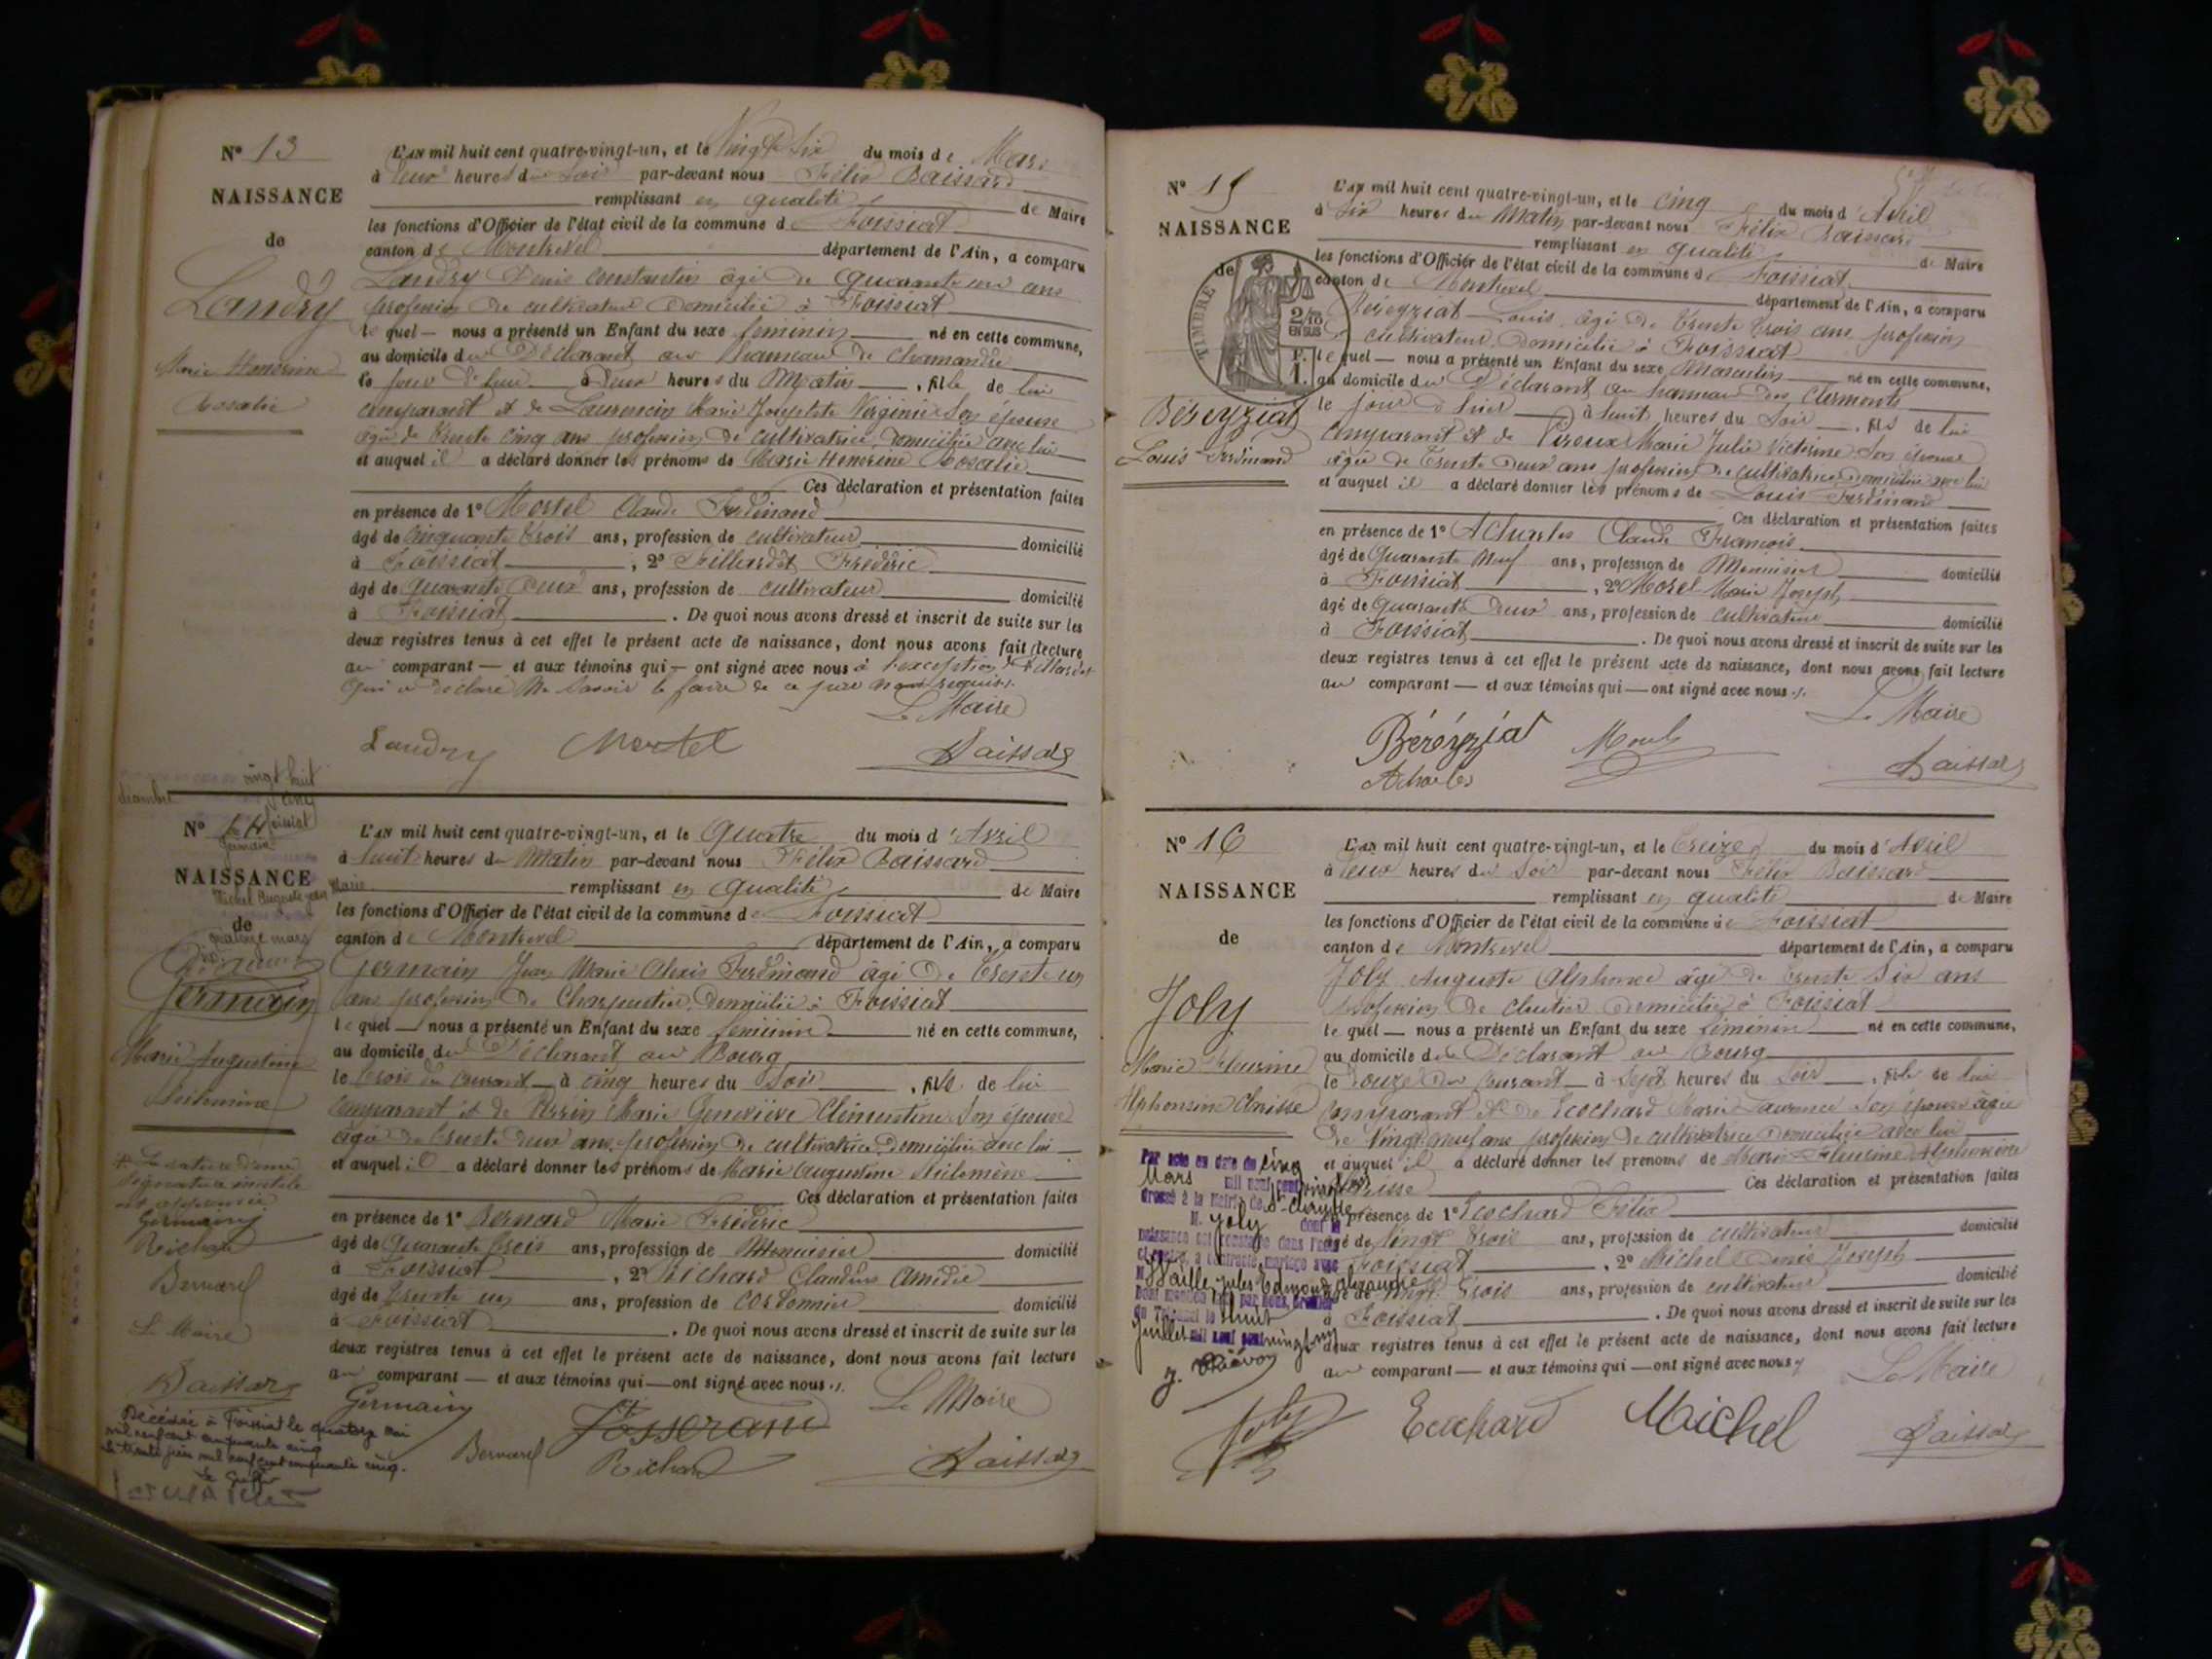 N° 13
NAISSANCE
de
Landry
Marie Honorine
Rosalie
L'AN mil huit cent quatre-vingt-un, et le Vingt Six du mois de Mars
à deux heures du Soir par-devant nous Félix Baissard
remplissant en qualité de Maire
les fonctions d'Officier de l'état civil de la commune de Foissiat
canton de Montrevel département de l'Ain, a comparu
Landry Denis Constantin âgé de quarante un ans
profession de cultivateur domicilié à Foissiat
lequel nous a présenté un Enfant du sexe féminin né en cette commune,
au domicile du Déclarant au hameau de Chamandre
le jour d'hui à Deux heures du Matin, fille de lui
comparant et de Laurencin Marie Josephte Virginie Son épouse
âgée de trente cinq ans profession de cultivatrice domiciliée avec lui
et auquel il a déclaré donner les prénoms de Marie Honorine Rosalie
Ces déclaration et présentation faites
en présence de 1° Mortel Claude Ferdinand
âgé de cinquante trois ans, profession de cultivateur domicilié
à Foissiat, 2° Fillardet Frédéric
âgé de quarante deux ans, profession de cultivateur domicilié
à Foissiat. De quoi nous avons dressé et inscrit de suite sur les
deux registres tenus à cet effet le présent acte de naissance, dont nous avons fait lecture
au comparant et aux témoins qui ont signé avec nous à l'exception de Fillardet
qui a déclaré ne savoir le faire de ce par nous requis.
Le Maire
Landry Mortel Baissard
N° 14
NAISSANCE
de
Germain
Marie Augustine
Philomène
L'AN mil huit cent quatre-vingt-un, et le Quatre du mois d'Avril
à huit heures du Matin par-devant nous Félix Baissard
remplissant en qualité de Maire
les fonctions d'Officier de l'état civil de la commune de Foissiat
canton de Montrevel département de l'Ain, a comparu
Germain Jean Marie Alexis Ferdinand âgé de trente un
ans profession de Charpentier domicilié à Foissiat
lequel nous a présenté un Enfant du sexe féminin né en cette commune,
au domicile du Déclarant au Bourg
le trois du courant à cinq heures du Soir, fille de lui
comparant et de Perrin Marie Geneviève Clémentine Son épouse
âgée de trente deux ans profession de cultivatrice domiciliée avec lui
et auquel il a déclaré donner les prénoms de Marie Augustine Philomène
Ces déclaration et présentation faites
en présence de 1° Bernard Marie Frédéric
âgé de Quarante trois ans, profession de Menuisier domicilié
à Foissiat, 2° Richard Claudius Amédée
âgé de trente un ans, profession de cordonnier domicilié
à Foissiat. De quoi nous avons dressé et inscrit de suite sur les
deux registres tenus à cet effet le présent acte de naissance, dont nous avons fait lecture
au comparant et aux témoins qui ont signé avec nous.
Le Maire
Germain Bernard Josserand Richard Baissard
Germain
Richard
Bernard
Le Maire
Baissard
Décédée à Foissiat le quatorze mai
mil neuf cent cinquante cinq
le trente juin mil neuf cent cinquante cinq.
Le Greffier
N° 15
NAISSANCE
de
TIMBRE
2/10
EN SUS
Béreyziat
Louis Ferdinand
L'AN mil huit cent quatre-vingt-un, et le cinq du mois d'Avril
à Six heures du Matin par-devant nous Félix Baissard
remplissant en qualité de Maire
les fonctions d'Officier de l'état civil de la commune de Foissiat
canton de Montrevel département de l'Ain, a comparu
Béreyziat Louis âgé de trente trois ans profession
cultivateur domicilié à Foissiat
lequel nous a présenté un Enfant du sexe Masculin né en cette commune,
au domicile du Déclarant au hameau des Clermonts
le jour d'hier à huit heures du Soir, fils de lui
comparant et de Piroux Marie Julie Victorine Son épouse
âgée de trente deux ans profession de cultivatrice domiciliée avec lui
et auquel il a déclaré donner les prénoms de Louis Ferdinand
Ces déclaration et présentation faites
en présence de 1° Acharles Claude François
âgé de Quarante Neuf ans, profession de Menuisier domicilié
à Foissiat, 2° Morel Marie Joseph
âgé de Quarante Deux ans, profession de cultivateur domicilié
à Foissiat. De quoi nous avons dressé et inscrit de suite sur les
deux registres tenus à cet effet le présent acte de naissance, dont nous avons fait lecture
au comparant et aux témoins qui ont signé avec nous.
Le Maire
Béréyziat Morel Baissard
Acharles
N° 16
NAISSANCE
de
Joly
Marie Fleurine
Alphonsine Clarisse
L'AN mil huit cent quatre-vingt-un, et le treize du mois d'Avril
à deux heures du Soir par-devant nous Félix Baissard
remplissant en qualité de Maire
les fonctions d'Officier de l'état civil de la commune de Foissiat
canton de Montrevel département de l'Ain, a comparu
Joly Auguste Alphonse âgé de trente Six ans
profession de cloutier domicilié à Foissiat
lequel nous a présenté un Enfant du sexe féminin né en cette commune,
au domicile du Déclarant au Bourg
le douze du courant à Sept heures du Soir, fille de lui
comparant et de Ecochard Marie Laurence Son épouse âgée
de Vingt neuf ans profession de cultivatrice domiciliée avec lui
et auquel il a déclaré donner les prénoms de Marie Fleurine Alphonsine
Clarisse Ces déclaration et présentation faites
en présence de 1° Ecochard Félix
âgé de Vingt trois ans, profession de cultivateur domicilié
à Foissiat, 2° Michel Denis Joseph
âgé de Vingt trois ans, profession de cultivateur domicilié
à Foissiat. De quoi nous avons dressé et inscrit de suite sur les
deux registres tenus à cet effet le présent acte de naissance, dont nous avons fait lecture
au comparant et aux témoins qui ont signé avec nous
Le Maire
Joly Ecochard Michel Baissard
Par acte en date du cinq
Mars mil neuf cent
dressé à la Mairie de St-Claude
M. Joly dont la
naissance est constatée dans l'acte
ci-contre, a contracté mariage avec
M. Baille Jules Edmond Alexandre